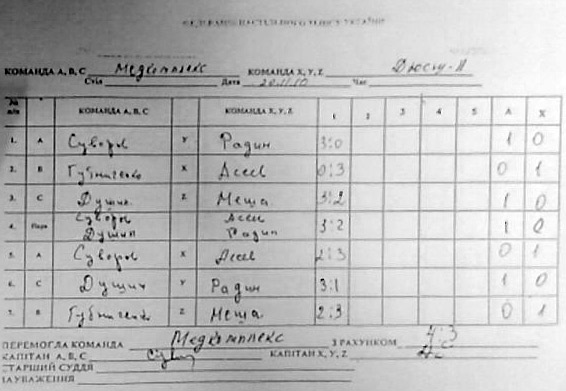 ФЕДЕРАЦІЯ НАСТІЛЬНОГО ТЕНІСУ УКРАЇНИ
КОМАНДА А, В, С Медкомплекс КОМАНДА X, Y, Z Дюсш-11
Стіл Дата 20.11.10 Час
№ п/п КОМАНДА А, В, С КОМАНДА X, Y, Z 1 2 3 4 5 А X
1. А Суворов Y Радин 3:0 1 0
2. В X Асеев 0:3 0 1
3. С Душин Z Меша 3:2 1 0
Суворов Асеев
4. Пара Душин Радин 3:2 1 0
5. А Суворов X Асеев 2:3 0 1
6. С Душин Y Радин 3:1 1 0
7. В Z Меша 2:3 0 1
ПЕРЕМОГЛА КОМАНДА Медкомплекс З РАХУНКОМ 4:3
КАПІТАН А, В, С КАПІТАН X, Y, Z
СТАРШИЙ СУДДЯ
ЗАУВАЖЕННЯ